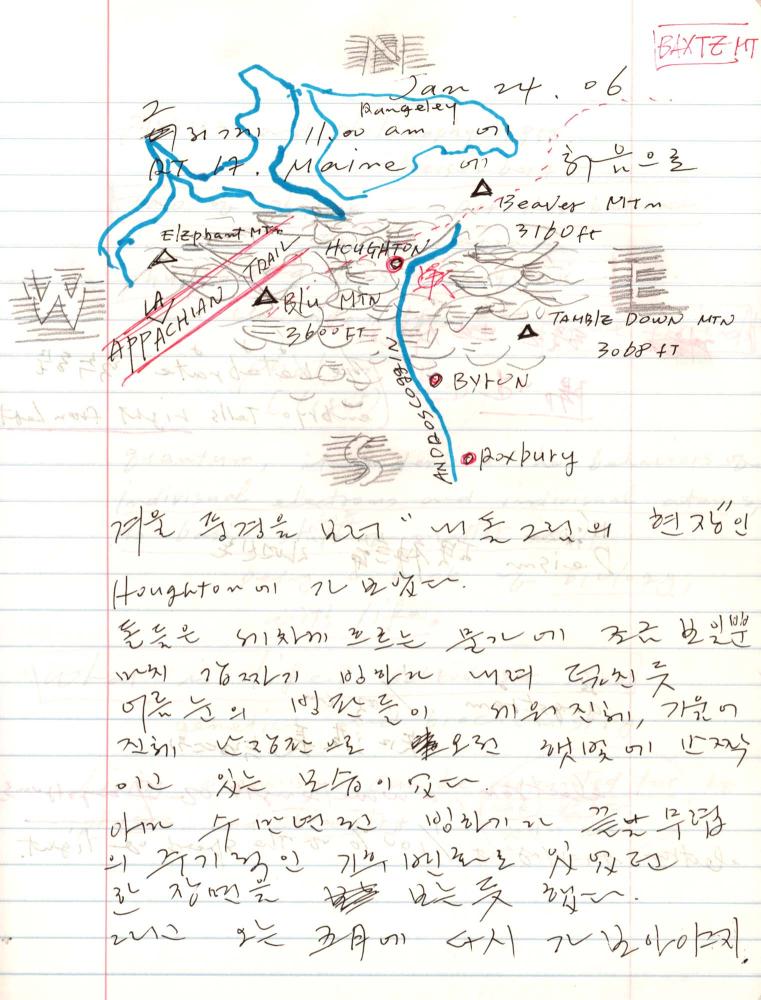 BAXTE MT
N
Jan 24. 06
Rangeley
11.00 am 에
RT 17. Maine 에 처음으로
Beaver MTn
3160ft
Elephant MTn
HOUGHTON
W
E
LA,
APPACHIAN TRAIL
Blu MTN
3600 FT
TAMBLE DOWN MTN
3068 fT
ANDROSCOGGIN
BYRON
S
Roxbury
겨울 풍경을 보러 "내 돌그림의 현장"인
Houghton에 가 보았다.
돌들은 세차게 흐르는 물가에 조금 보일뿐
마치 갑자기 빙하가 내려 덮친 듯
어름 눈의 빙판들이 세워진체, 기울어
진체 난장판으로 오전 햇빛에 반짝
이고 있는 모습이였다.
아마 수 만년전 빙하기가 끝날 무렵
의 주기적인 기후 변화로 있었던
한 장면을 보는듯 했다.
그리고 오는 五月에 다시 가 보아야지.